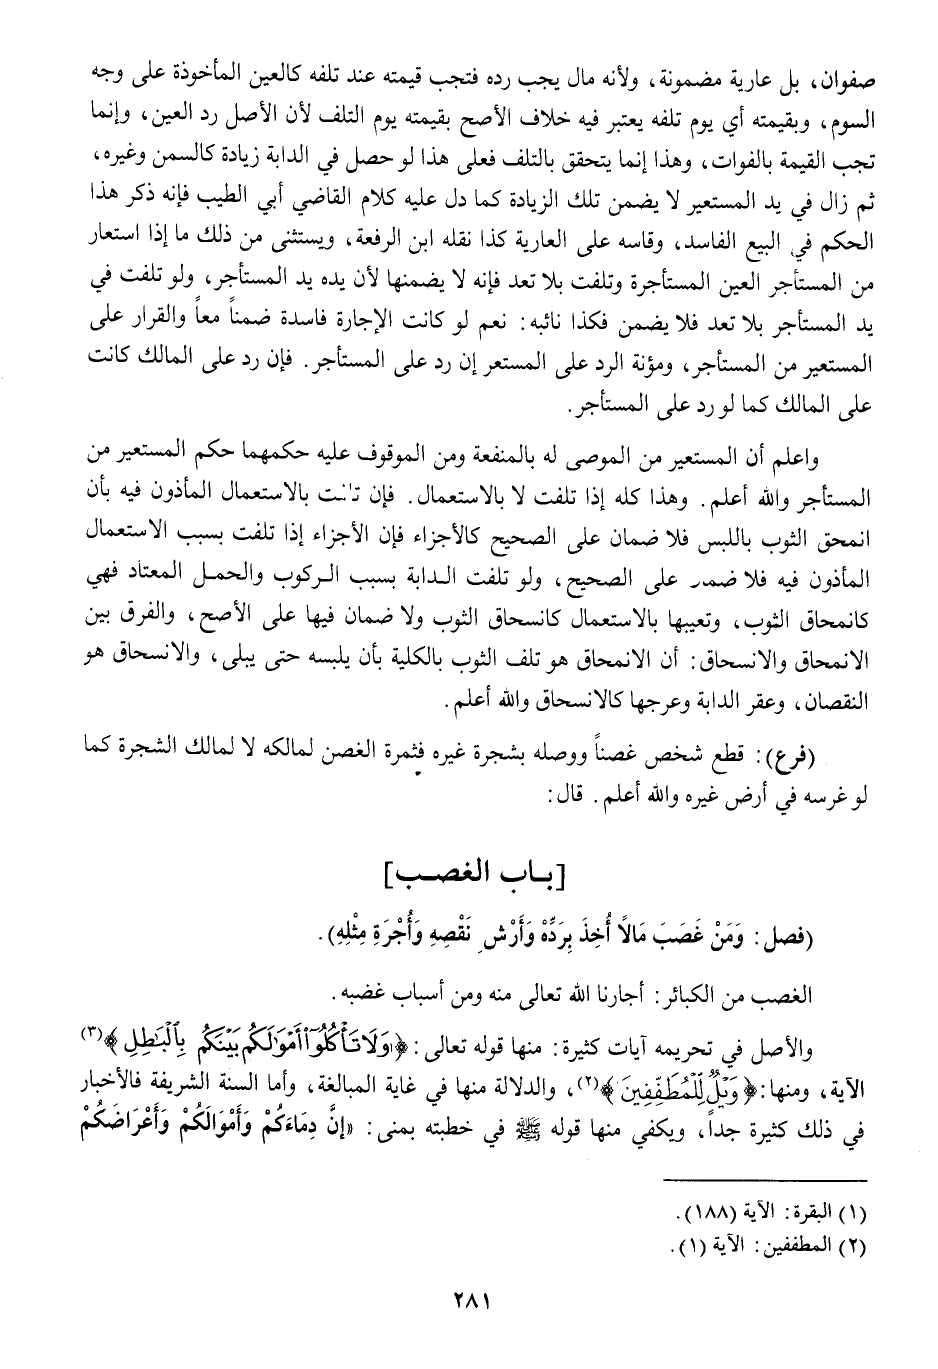 صفوان، بل عارية مضمونة، ولأنه مال يجب رده فتجب قيمته عند تلفه كالعين المأخوذة على وجه
السوم، وبقيمته أي يوم تلفه يعتبر فيه خلاف الأصح بقيمته يوم التلف لأن الأصل رد العين، وإنما
تجب القيمة بالفوات، وهذا إنما يتحقق بالتلف فعلى هذا لو حصل في الدابة زيادة كالسمن وغيره،
ثم زال في يد المستعير لا يضمن تلك الزيادة كما دل عليه كلام القاضي أبي الطيب فإنه ذكر هذا
الحكم في البيع الفاسد، وقاسه على العارية كذا نقله ابن الرفعة، ويستثنى من ذلك ما إذا استعار
من المستأجر العين المستأجرة وتلفت بلا تعد فإنه لا يضمنها لأن يده يد المستأجر، ولو تلفت في
يد المستأجر بلا تعد فلا يضمن فكذا نائبه: نعم لو كانت الإجارة فاسدة ضمناً معاً والقرار على
المستعير من المستأجر، ومؤنة الرد على المستعر إن رد على المستأجر. فإن رد على المالك كانت
على المالك كما لو رد على المستأجر.
واعلم أن المستعير من الموصى له بالمنفعة ومن الموقوف عليه حكمهما حكم المستعير من
المستأجر والله أعلم. وهذا كله إذا تلفت لا بالاستعمال. فإن بالاستعمال المأذون فيه بأن
انمحق الثوب باللبس فلا ضمان على الصحيح كالأجزاء فإن الأجزاء إذا تلفت بسبب الاستعمال
المأذون فيه فلا على الصحيح، ولو تلفت الدابة بسبب الركوب والحمل المعتاد فهي
كانمحاق الثوب، وتعيبها بالاستعمال كانسحاق الثوب ولا ضمان فيها على الأصح، والفرق بين
الانمحاق والانسحاق: أن الانمحاق هو تلف الثوب بالكلية بأن يلبسه حتى يبلى، والانسحاق هو
النقصان، وعقر الدابة وعرجها كالانسحاق والله أعلم.
(فرع): قطع شخص غصناً ووصله بشجرة غيره فثمرة الغصن لمالكه لا لمالك الشجرة كما
لو غرسه في أرض غيره والله أعلم. قال:
[باب الغصب]
(فصل: وَمَنْ غَصَبَ مَالًا أُخِذَ بِرَدِّهْ وَأَرْشِ نَقْصِهِ وَأُجْرَةِ مِثْلِهِ).
الغصب من الكبائر: أجارنا الله تعالى منه ومن أسباب غضبه.
والأصل في تحريمه آيات كثيرة: منها قوله تعالى: ﴿وَلَا تَأْكُلُوٓا۟ أَمْوَٰلَكُم بَيْنَكُم بِٱلْبَٰطِلِ﴾(٣)
الآية، ومنها: ﴿وَيْلٌ لِّلْمُطَفِّفِينَ﴾(٢)، والدلالة منها في غاية المبالغة، وأما السنة الشريفة فالأخبار
في ذلك كثيرة جداً، ويكفي منها قوله ﷺ في خطبته بمنى: «إنَّ دِمَاءَكُمْ وَأَمْوَالَكُمْ وَأَعْرَاضَكُمْ
(١) البقرة: الآية (١٨٨).
(٢) المطففين: الآية (١).
٢٨١